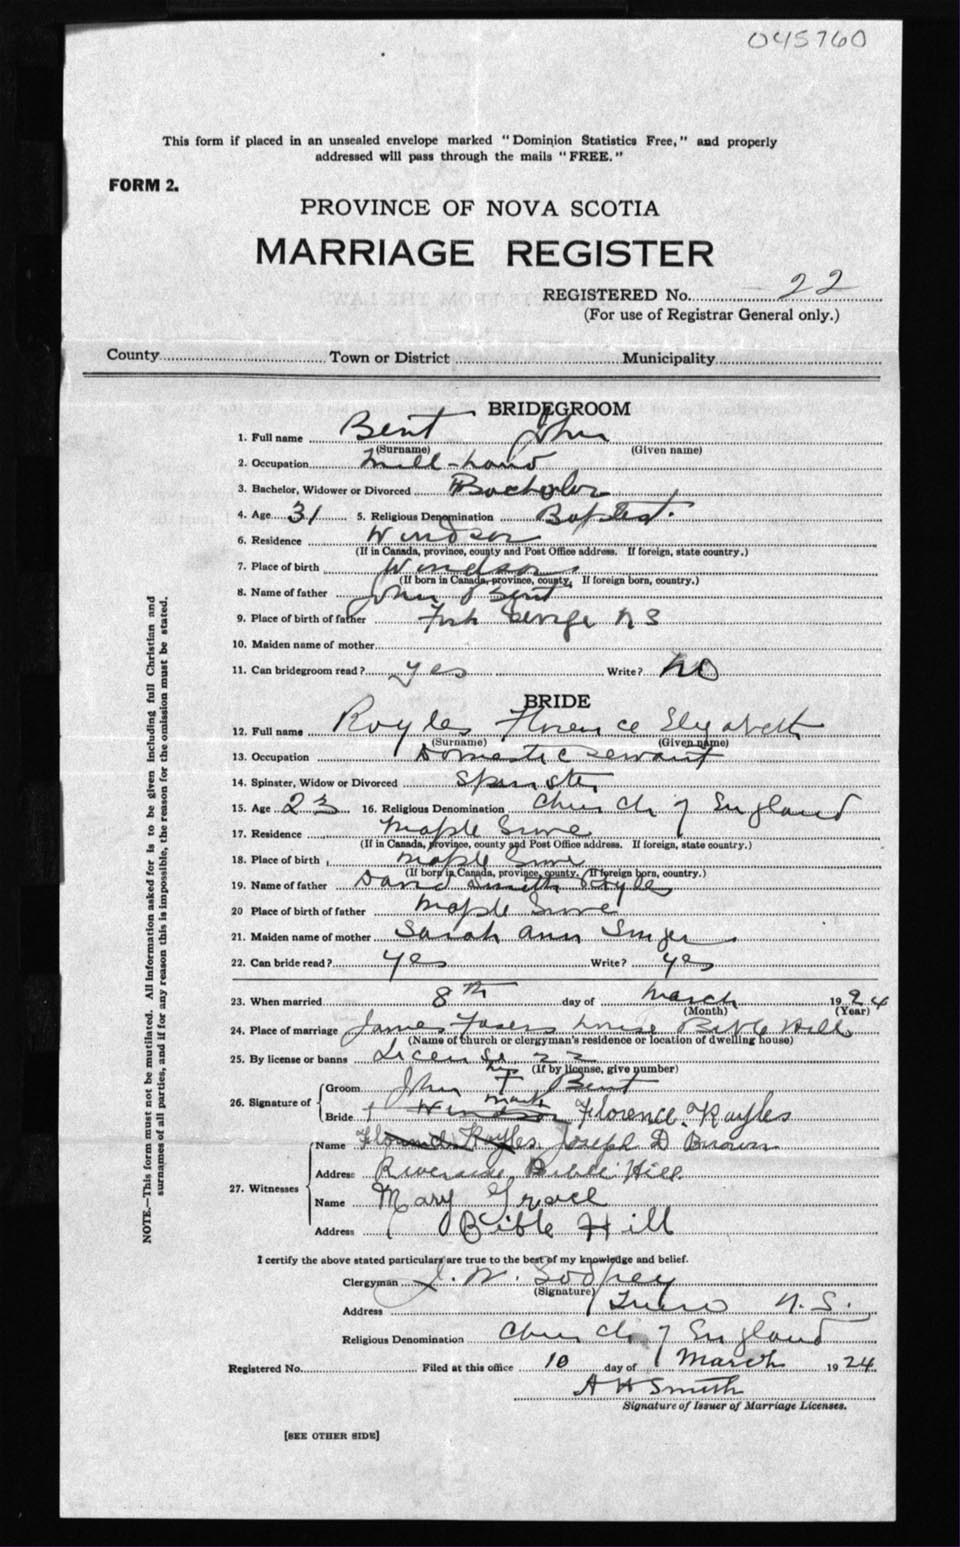 045760
This form if placed in an unsealed envelope marked "Dominion Statistics Free," and properly
addressed will pass through the mails "FREE."
FORM 2.
PROVINCE OF NOVA SCOTIA
MARRIAGE REGISTER
REGISTERED No. 22
(For use of Registrar General only.)
County Town or District Municipality
BRIDEGROOM
1. Full name Bent John
(Surname) (Given name)
2. Occupation Mill-hand
3. Bachelor, Widower or Divorced Bachelor
4. Age 31 5. Religious Denomination Baptist.
6. Residence Windsor
(If in Canada, province, county and Post Office address. If foreign, state country.)
7. Place of birth Windsor
(If born in Canada, province, county, If foreign born, country.)
8. Name of father John Bent
9. Place of birth of father George N S
10. Maiden name of mother
11. Can bridegroom read? yes Write? No
BRIDE
12. Full name Royles Florence Elizabeth
(Surname) (Given name)
13. Occupation Domestic Servant
14. Spinster, Widow or Divorced Spinster
15. Age 23 16. Religious Denomination Church of England
17. Residence Maple Grove
(If in Canada, province, county and Post Office address. If foreign, state country.)
18. Place of birth Maple Grove
(If born in Canada, province, county. If foreign born, country.)
19. Name of father David Smith Royles
20 Place of birth of father Maple Grove
21. Maiden name of mother Sarah Ann
22. Can bride read? yes Write? yes
23. When married 8th day of March 1924
(Month) (Year)
24. Place of marriage James house Bible Hill
(Name of church or clergyman's residence or location of dwelling house)
25. By license or banns License 22
(If by license, give number)
26. Signature of Groom John F his Bent
Bride mark Windsor Florence Rayles
27. Witnesses Name Florence Rayles Joseph D Brown
Address Riverside Bible Hill
Name Mary Grace
Address Bible Hill
I certify the above stated particulars are true to the best of my knowledge and belief.
Clergyman J. W. Godfrey
(Signature)
Address Truro N.S.
Religious Denomination Church of England
Registered No. Filed at this office 10 day of March 1924
A H Smith
Signature of Issuer of Marriage Licenses.
[SEE OTHER SIDE]
NOTE.—This form must not be mutilated. All information asked for is to be given including full Christian and
surnames of all parties, and if for any reason this is impossible, the reason for the omission must be stated.